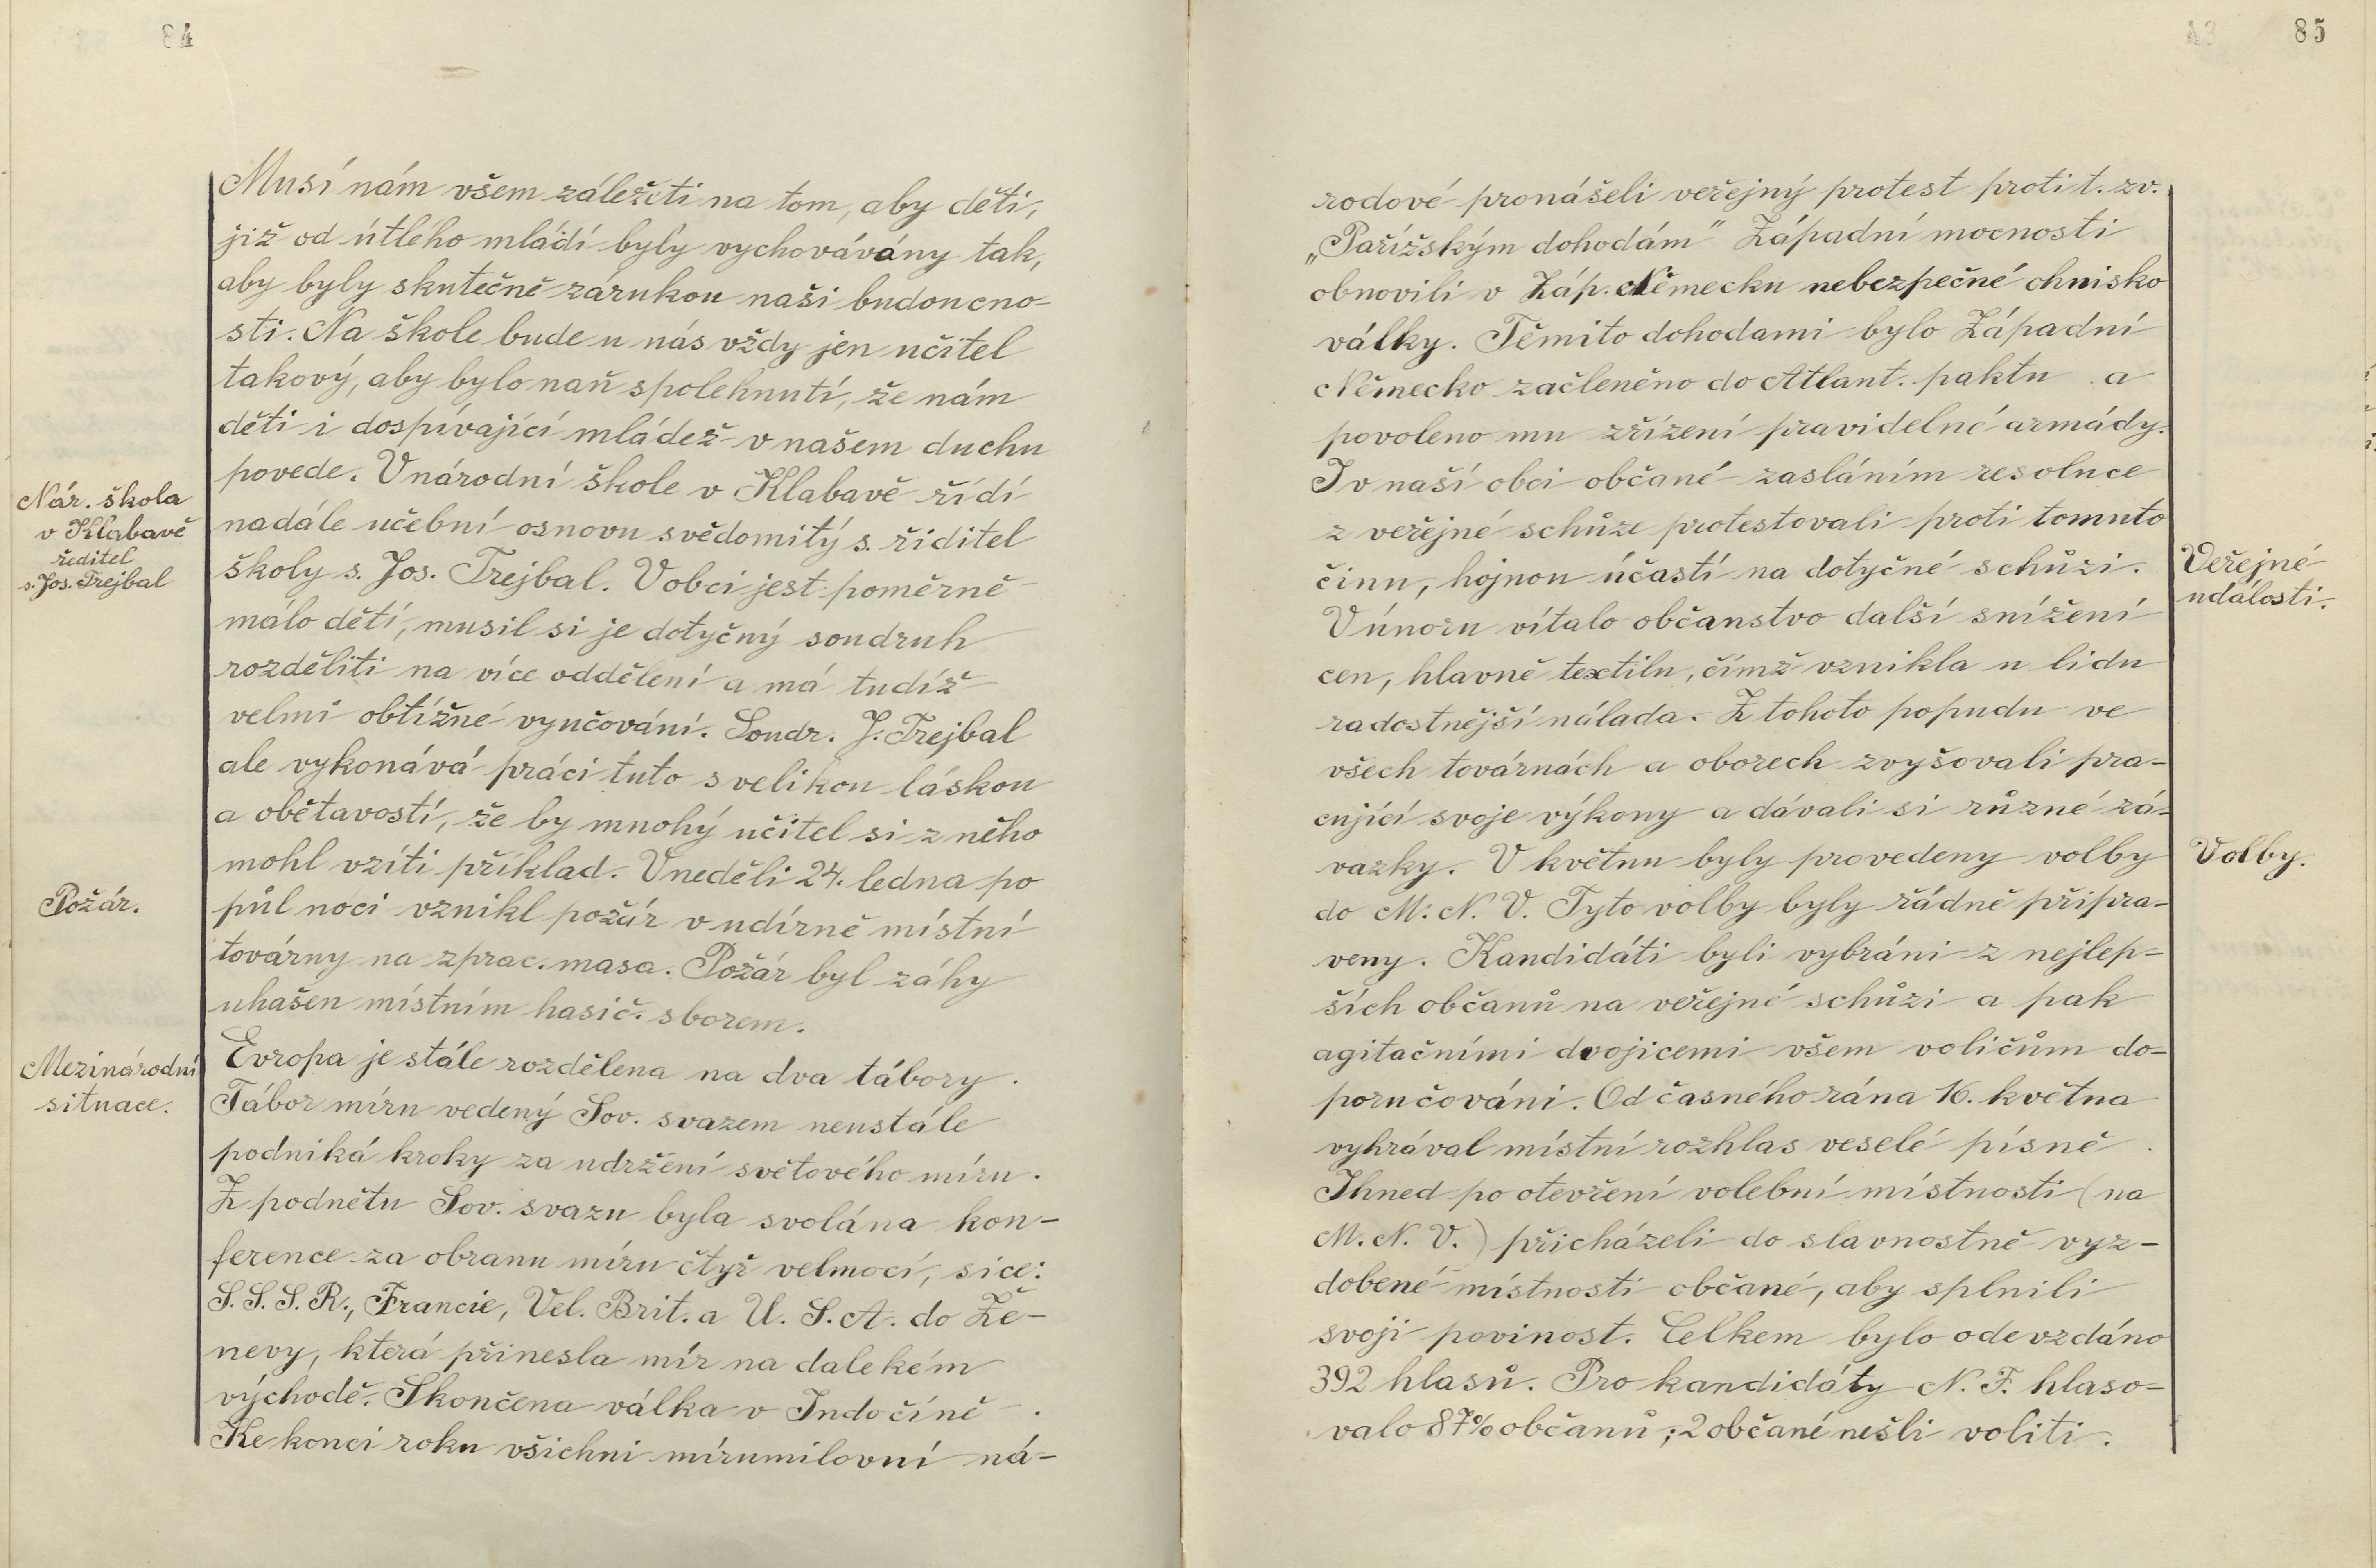 84
Musí nám všem záležeti na tom, aby děti,
již od útlého mládí byly vychovávány tak,
aby byly skutečně zárukou naši budoucno-
sti. Na škole bude u nás vždy jen učitel
takový, aby bylo naň spolehnutí, že nám
děti i dospívající mládež v našem duchu
povede. V národní škole v Klabavě řídí
nadále učební osnovu svědomitý s. řiditel
školy s. Jos. Trejbal. V obci jest poměrně
málo dětí, musil si je dotyčný soudruh
rozděliti na více oddělení a má tudíž
velmi obtížné vyučování. Soudr. J. Trejbal
ale vykonává práci tuto s velikou láskou
a obětavostí, že by mnohý učitel si z něho
mohl vzíti příklad. V neděli 24. ledna po
půl noci vznikl požár v udírně místní
továrny na zprac. masa. Požár byl záhy
uhašen místním hasič. sborem.
Evropa je stále rozdělena na dva tábory.
Tábor míru vedený Sov. svazem neustále
podniká kroky za udržení světového míru.
Z podnětu Sov. svazu byla svolána kon-
ference za obranu míru čtyř velmocí, sice:
S. S. S. R., Francie, Vel. Brit. a U. S. A. do Že-
nevy, která přinesla mír na dalekém
východě. Skončena válka v Indočíně.
Ke konci roku všichni mírumilovní ná-
Nár. škola
v Klabavě
ředitel
s. Jos. Trejbal
Požár.
Mezinárodní
situace.
85
rodové pronášeli veřejný protest proti t. zv.
„Pařížským dohodám" Západní mocnosti
obnovili v Záp. Německu nebezpečné ohnisko
války. Těmito dohodami bylo Západní
Německo začleněno do Atlant. paktu a
povoleno mu zřízení pravidelné armády.
I v naší obci občané zasláním resoluce
z veřejné schůze protestovali proti tomuto
činu, hojnou účastí na dotyčné schůzi.
V únoru vítalo občanstvo další snížení
cen, hlavně textilu, čímž vznikla u lidu
radostnější nálada. Z tohoto popudu ve
všech továrnách a oborech zvyšovali pra-
cující svoje výkony a dávali si různé zá-
vazky. V květnu byly provedeny volby
do M. N. V. Tyto volby byly řádně připra-
veny. Kandidáti byli vybráni z nejlep-
ších občanů na veřejné schůzi a pak
agitačními dvojicemi všem voličům do-
poručováni. Od časného rána 16. května
vyhrával místní rozhlas veselé písně.
Ihned po otevření volební místnosti (na
M. N. V.) přicházeli do slavnostně vyz-
dobené místnosti občané, aby splnili
svoji povinost. Celkem bylo odevzdáno
392 hlasů. Pro kandidáty N. F. hlaso-
valo 87% občanů; 2 občané nešli voliti.
Veřejné
události.
Volby.